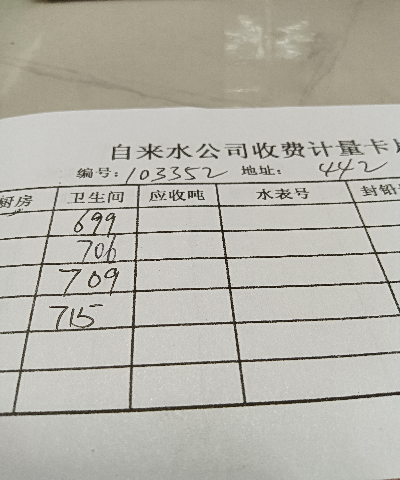 自来水公司收费计量卡片
编号：103352 地址： 442
厨房 卫生间 应收吨 水表号 封铅
699
706
709
715